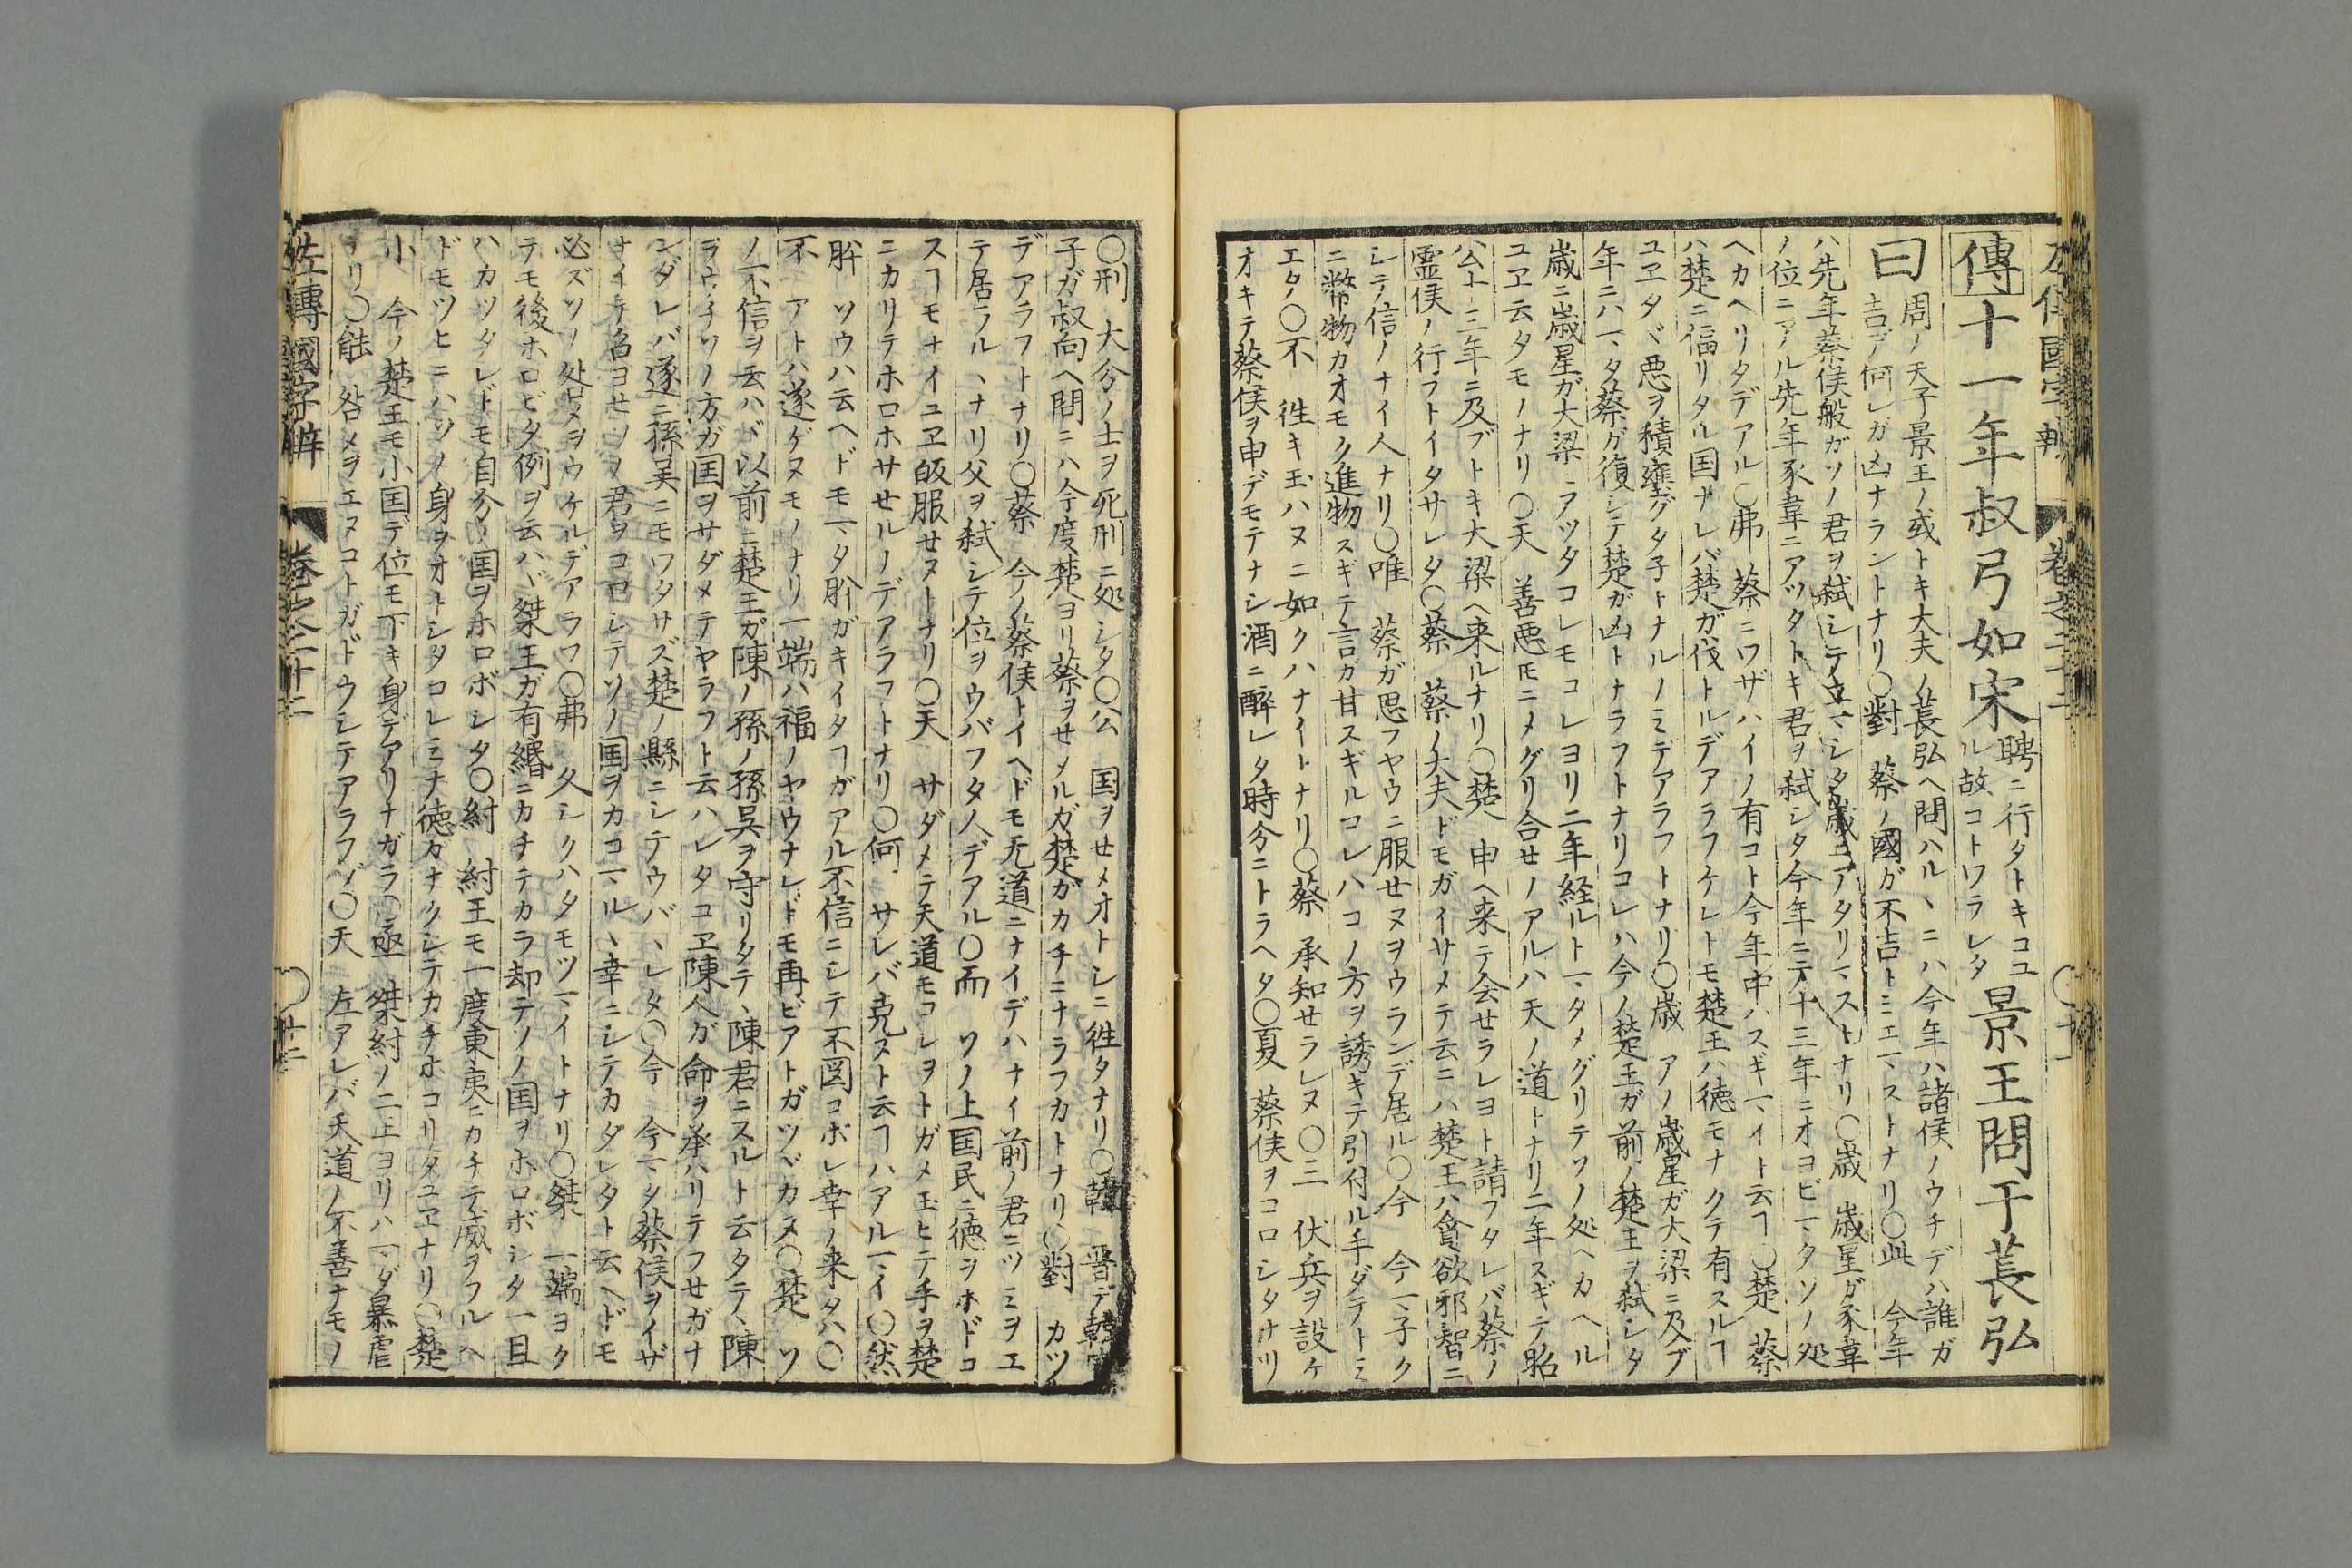 左傳國字辨 卷之二十二
傳十一年叔弓如宋 聘ニ行タトキコユル故コトワラレタ 景王問于萇弘
曰 周ノ天子景王ノ或トキ大夫ノ萇弘ヘ問ハルヽニハ今年ハ諸侯ノウチデハ誰ガ
吉デ何レガ凶ナラントナリ〇對 蔡ノ國ガ不吉トミエマストナリ〇此 今年
ハ先年蔡侯般ガソノ君ヲ弑シテ立マシタ歳ニアタリマストナリ〇歳 歳星ガ豕韋
ノ位ニアル先年豕韋ニアツタトキ君ヲ弑シタ今年ニテ十三年ニオヨビマタソノ処
ヘカヘリタデアル〇弗 蔡ニワザハイノ有コト今年中ハスギマイト云ヿ〇楚 蔡
ハ楚ニ偪リタル国ナレバ楚ガ伐トルデアラフケレトモ楚王ハ徳モナクテ有スルヿ
ユヱタヾ悪ヲ積壅グタ子トナルノミデアラフトナリ〇歳 アノ歳星ガ大梁ニ及ブ
年ニハマタ蔡ガ復シテ楚ガ凶トナラフトナリコレハ今ノ楚王ガ前ノ楚王ヲ弑シタ
歳ニ歳星ガ大梁ニアツタコレモコレヨリ二年経ルトマタメグリテソノ処ヘカヘル
ユヱ云タモノナリ〇天 善悪𪜈ニメグリ合せノアルハ天ノ道トナリ二年スギテ昭
公十三年ニ及ブトキ大梁ヘ来ルナリ〇楚 申ヘ来テ会せラレヨト請フタレバ蔡ノ
霊侯ノ行フトイタサレタ〇蔡 蔡ノ大夫ドモガイサメテ云ニハ楚王ハ貪欲邪智ニ
シテ信ノナイ人ナリ〇唯 蔡ガ思フヤウニ服せヌヲウランデ居ル〇今 今マ子ク
ニ幣物カオモク進物スギテ言ガ甘スギルコレハコノ方ヲ誘キテ引付ル手ダテトミ
エタ〇不 徃キ玉ハヌニ如クハナイトナリ〇蔡 承知せラレヌ〇三 伏兵ヲ設ケ
オキテ蔡侯ヲ申デモテナシ酒ニ醉レタ時分ニトラヘタ〇夏 蔡侯ヲコロシタナリ
〇刑 大分ノ士ヲ死刑ニ処シタ〇公 国ヲせメオトシニ徃タナリ〇韓 晋デ韓宣
子ガ叔向ヘ問ニハ今度楚ヨリ蔡ヲせメルガ楚ガカチニナラフカトナリ〇對 カツ
デアラフトナリ〇蔡 今ノ蔡侯トイヘドモ无道ニナイデハナイ前ノ君ニツミヲエ
テ居ラルヽナリ父ヲ弑シテ位ヲウバフタ人デアル〇而 ソノ上国民ニ徳ヲホドコ
スヿモナイユヱ皈服せヌトナリ〇天 サダメテ天道モコレヲトガメ玉ヒテ手ヲ楚
ニカリテホロホサせルノデアラフトナリ〇何 サレバ克ヌト云ヿハアルマイ〇然
肸 ソウハ云ヘドモマタ肸ガキイタヿガアル不信ニシテ不図コボレ幸ノ来タハ〇
不 アトハ遂ゲヌモノナリ一端ハ福ノヤウナレドモ再ビアトガツヾカヌ〇楚 ソ
ノ不信ヲ云ハヾ以前ニ楚王ガ陳ノ孫ノ孫呉ヲ守リタテヽ陳君ニスルト云タテヽ陳
ラウイソノ方ガ国ヲサダメテヤラフト云ハレタコヱ陳人ガ命ヲ承ハリテフせガナ
ンダレバ遂ニ孫呉ニモワタサズ楚ノ縣ニシテウバヽレタ〇今 今マタ蔡侯ヲイザ
ナイテ召ヨせソノ君ヲコロシテソノ国ヲカコマルヽ幸ニシテカタレタト云ヘドモ
必ズソノ咎メヲウケルデアラフ〇弗 久シクハタモツマイトナリ〇桀 一端ヨク
テモ後ホロビタ例ヲ云ハヾ桀王ガ有緡ニカチテカラ却テソノ国ヲホロボシタ一旦
ハカツタレドモ自分ノ国ヲホロボシタ〇紂 紂王モ一度東夷ニカチテ威ヲフルヘ
ドモツヒニハソノ身ヲオトシタコレミナ徳ガナクシテカチホコリタユヱナリ〇楚
小 今ノ楚王モ小国デ位モ下キ身デアリナガラ〇亟 桀紂ノ二王ヨリハマダ暴虐
ヲリ〇能 咎メヲエヌコトガドウシテアラフゾ〇天 左アレバ天道ノ不善ナモノ
左傳國字辨 卷之二十二 〇廿二